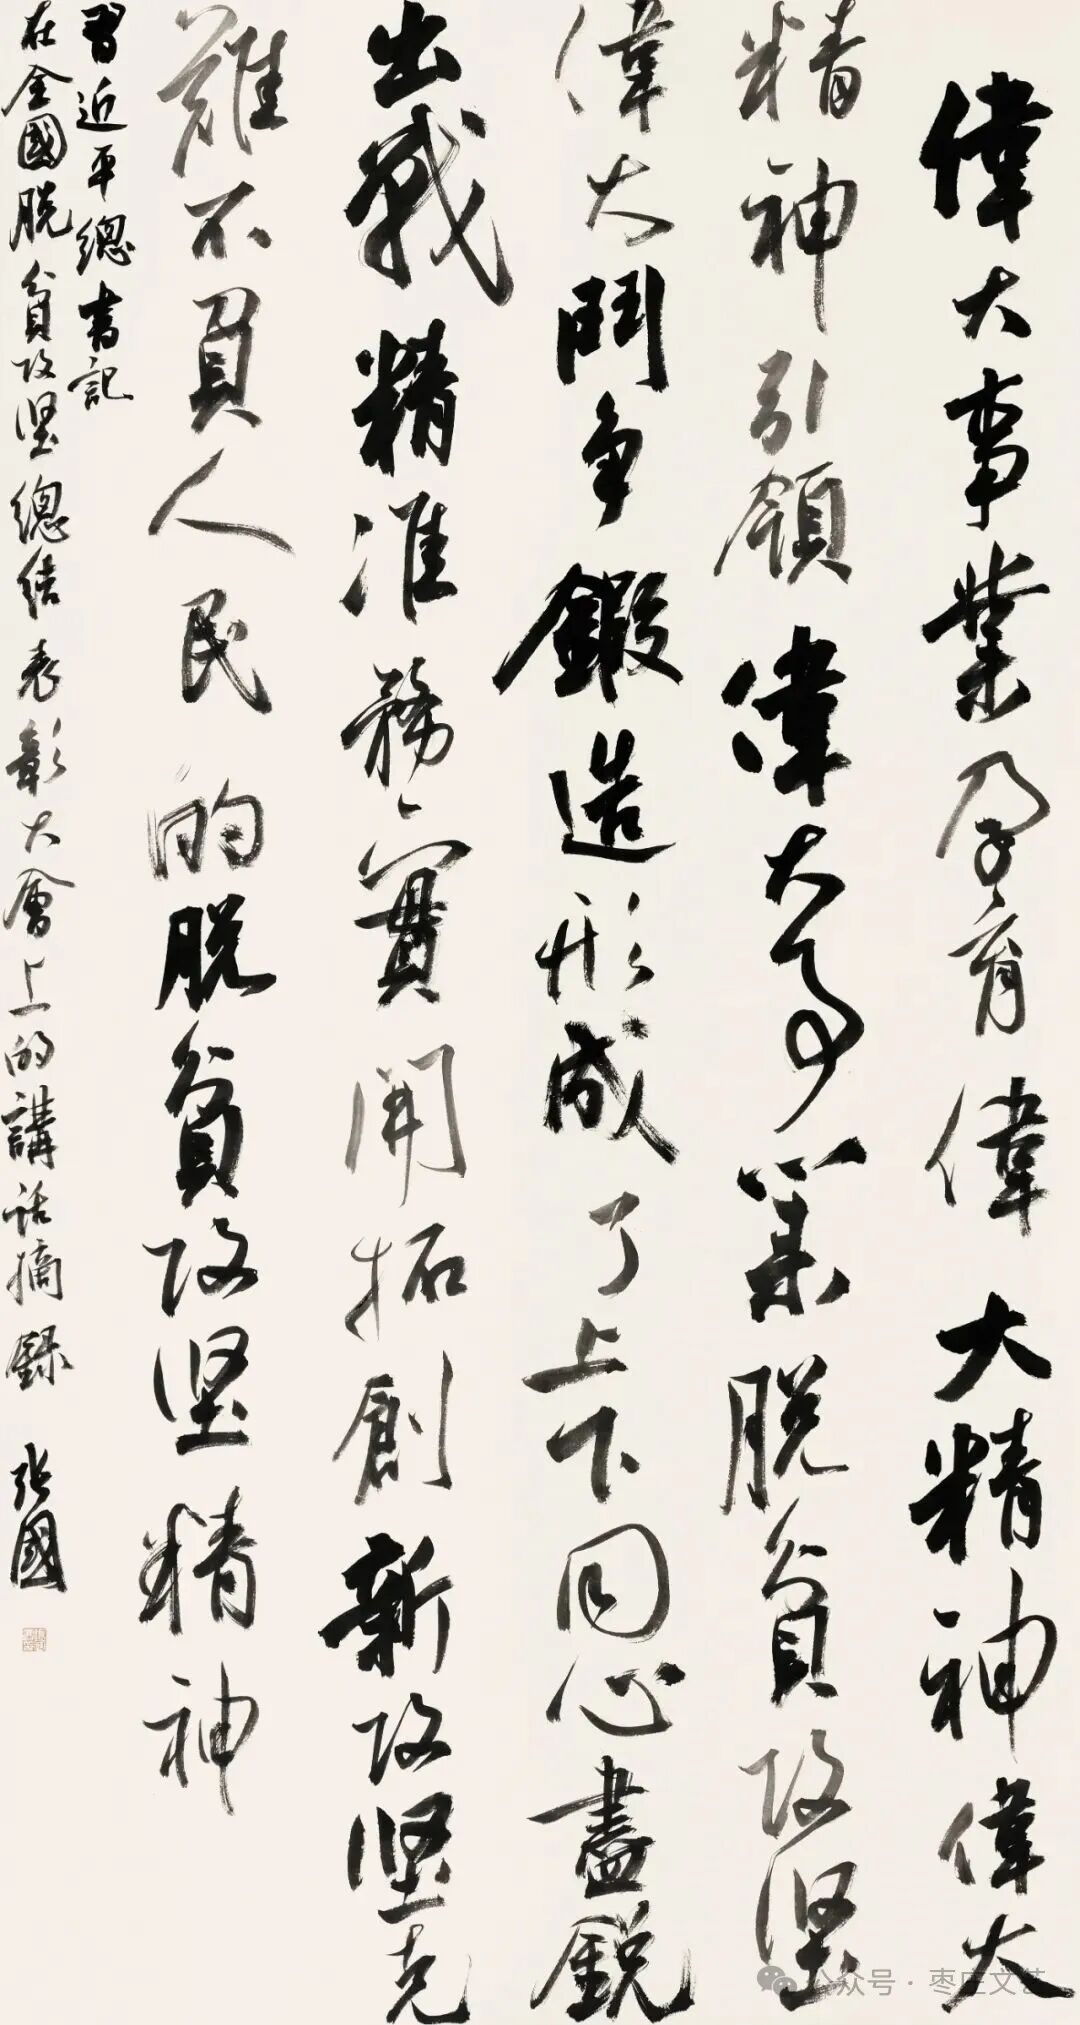 偉大事業孕育偉大精神偉大
精神引領偉大事業脱貧攻堅
偉大鬥争鍛造形成了上下同心盡鋭
出戰精准務實開拓創新攻堅克
難不負人民的脱貧攻堅精神
習近平總書記
在全國脱貧攻堅總結表彰大會上的講話摘録 張國
公众号·枣庄文艺